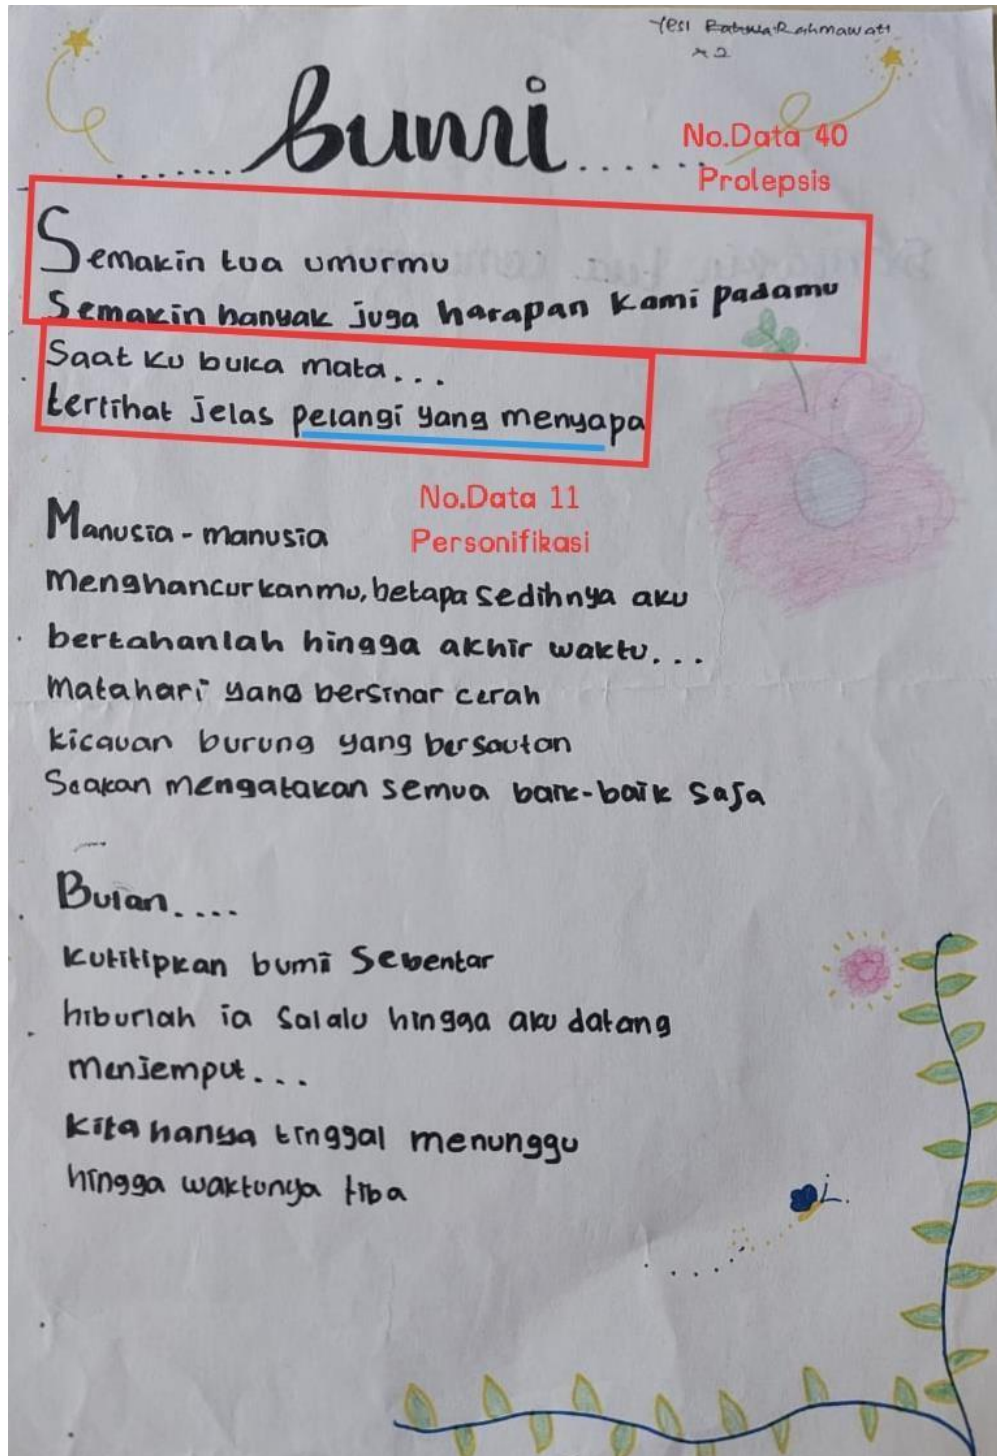 Yesi Rahma Rahmawati
x2
bumi
No.Data 40
Prolepsis
Semakin tua umurmu
Semakin banyak juga harapan kami padamu
Saat ku buka mata...
terlihat jelas pelangi yang menyapa
No.Data 11
Personifikasi
Manusia-manusia
menghancurkanmu, betapa sedihnya aku
bertahanlah hingga akhir waktu...
Matahari yang bersinar cerah
kicauan burung yang bersautan
Seakan mengatakan semua baik-baik saja
Bulan....
kutitipkan bumi sebentar
hiburlah ia salalu hingga aku datang
menjemput...
kita hanya tinggal menunggu
hingga waktunya tiba